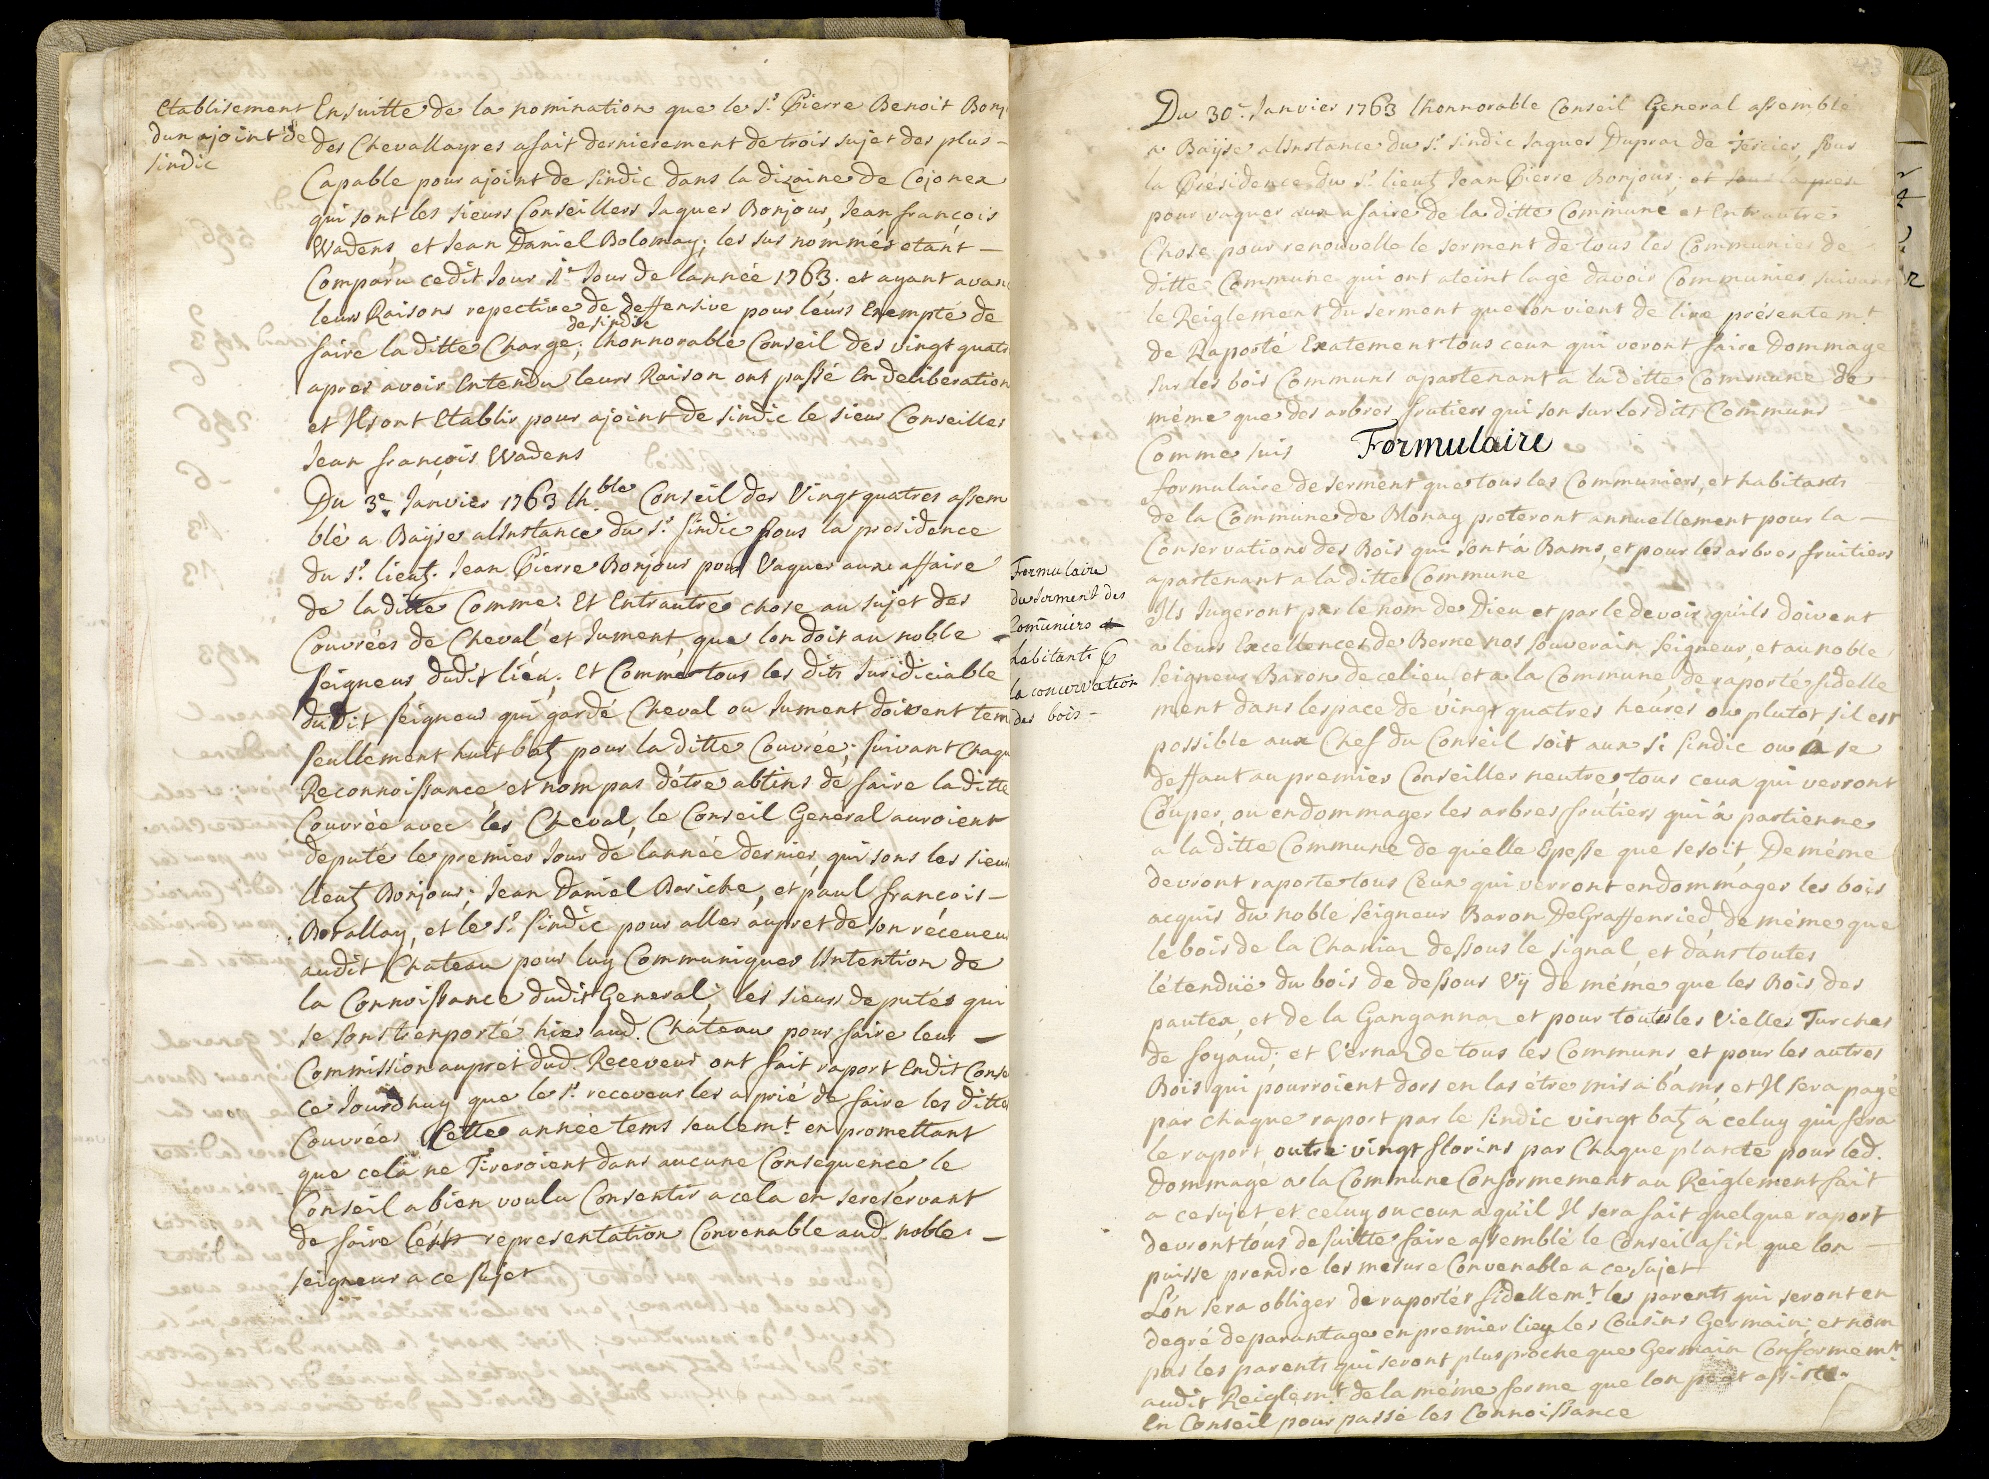 Etablisement
dun ajoint de
sindic
Ensuitte de la nomination que le Sr. Pierre Benoit Bonj
des Chevallayres a fait dernierement de trois sujet des plus –
Capable pour ajoint de sindic dans la dizaine de Cojonex
qui sont les sieurs Conseillers Jaques Bonjour, Jean françois
Wadens, et Jean Daniel Bolomay; les sus nommés etant –
Comparu cedit Jour 1er Jour de lannée 1763. et ayant avan
leurs Raisons repective de deffensive pour leurs Exempté de
faire la ditte Charge de sindic; lhonnorable Conseil des vingt quatr
apres avoir Entendu leurs Raison ont passé En deliberation
et Ils ont Etablis pour ajoint de sindic le sieur Conseiller
Jean françois Wadens
Du 3e. Janvier 1763 lh.ble Conseil des Vingt quatres assem
blé a Baÿse alInstance du Sr. sindic sous la presidence
du Sr. lieut. Jean Pierre Bonjour pour Vaquer aux affaire
de la ditte Comme. Et Entrautre chose au sujet des
Couvrées de Cheval, et Jument, que lon doit au noble –
Seigneur dudit liéu. Et Comme tous les dits Juridiciable
dudit Seigneur qui gardé Cheval ou Jument doivent tem
seullement huit batz pour la ditte Couvrée; suivant Chaqu
Reconnoissance et nom pas dêtre abtins de faire la ditte
Couvrée avec les Cheval, le Conseil General auroient
deputé le premier Jour de lannée dernier, qui sons les sieu
lieutz Bonjour; Jean Daniel Bariche, et paul françois –
Borallay, et le Sr. sindic pour aller aupret de son réceveu
audit Chateau pour luy Communiquer lIntention de
la Connoissance dudit General; les sieurs deputés qui
se sons trenporté hier aud. Chateau pour faire leur –
Commission aupret dud. Receveur ont fait raport Endit Conse
ce Jourdhuy que le Sr. receveur les a prié de faire les ditte
Couvrées Cette année tems seulemt. en promettant
que cela ne Tireroient dans aucune Consequence, le
Conseil a bien voulu Consentir a cela en sereservant
de faire representation Convenable aud. noble –
seigneur a ce sujet
Du 30e. Janvier 1763 lhonnorable Conseil General assemblé
a Baÿse alInstance du Sr. sindic Jaques Dupraz de Jercier, sous
la Présidence du Sr. lieutz Jean Pierre Bonjour; et sous la pres
pour vaquer aux afaire de la ditte Commune et Entrautre
Chose pour renouvelle le serment de tous les Communier de
ditte Commune qui ont ateint lage davoir Communier suivant
le Reiglement du serment que lon vient de lire présentemt.
de Raporté Exatement tous ceux qui veront faire Dommage
sur les bois Communs apartenant a la ditte Commune de
méme que des arbres frutiers qui son sur les dits Communs
Comme suis Formulaire
formulaire de serment que tous les Communiers, et habitants
de la Commune de Blonay preteront annuellement pour la –
Conservations des Bois qui sont á Bams, et pour les arbres fruitiers
apartenant a la ditte Commune
Formulaire
du serment des
Comuniers et
habitants p
la concervation
des bois –
Ils Jugeront par le nom de Dieu et par le devoir quils doivent
a leurs Excellences de Berne nos souverain seigneur, et au noble
Seigneur Baron de celieu, et a la Commune, de raporté fidelle
ment dans lespace de vingt quatres heures ou plutot sil est
possible aux Chef du Conseil soit aux Sr sindic ou á se
deffaut au premier Conseiller neutre, tous ceux qui verront
Couper, ou endommager les arbres frutiers qui á partienne
a la ditte Commune de quelle Epesse que se soit, De méme
devront raporte tous Ceux qui verront endommager les bois
acquis du noble seigneur Baron DeGraffenried, de méme que
le bois de la Chaniaz dessous le signal, et dans toutes
létenduë du bois de dessous Vÿ de méme que les Bois des
pautex, et de la Gangannaz et pour toutes les Vielles Turches
de soyaud; et Vernaz de tous les Communs, et pour les autres
Bois qui pourroient dors en las étre mis a báms, et Il sera payé
par chaque raport par le sindic vingt batz a celuy qui fera
le raport, outre vingt florins par Chaque plante pour led.
Dommage a la Commune Conformement au Reiglement fait
a ce sujet et celuy ou ceux a quil Il sera fait quelque raport
devront tous de suitte faire assemblé le Conseil afin que lon –
puisse prendre les mesure Convenable a ce sujet
Lon sera obliger de raportér fidellemt. les parents qui seront en
degré de parantage en premier lieu les Cousins Germain, et nom
pas les parents qui seront plus proche que Germain Conformemt.
audit Reiglemt. de la méme forme que lon peut assiste
En Conseil pour passé les Connoissance